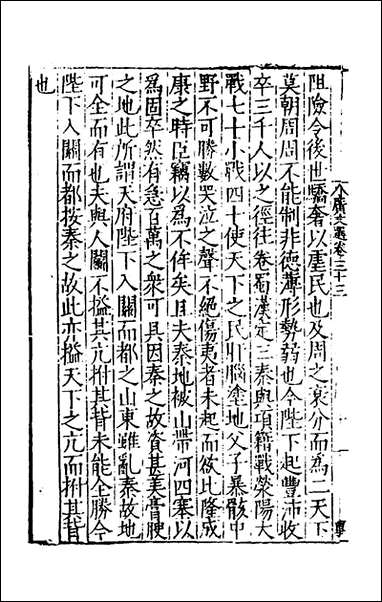 阻險令後世驕奢以虐民也及周之衰分而為二天下
廣文選卷
莫朝周周不能制非德薄形勢弱也今陛下起豐沛收
卒三千人以之徑往卷蜀漢定三秦與項籍戰滎陽大
戰七十小戰四十使天下之民肝腦塗地父子暴骸中
野不可勝數哭泣之聲不絕傷夷者未起而欲比隆成
康之時臣竊以為不侔矣且夫秦地被山帶河四塞以
為固卒然有急百萬之衆可具因秦之故資甚美膏腴
之地此所謂天府陛下入關而都之山東雖亂秦故地
可全而有也夫與人鬭不搤其亢拊其背未能全勝今
陛下入關而都按秦之故此亦搤天下之亢而拊其背
也